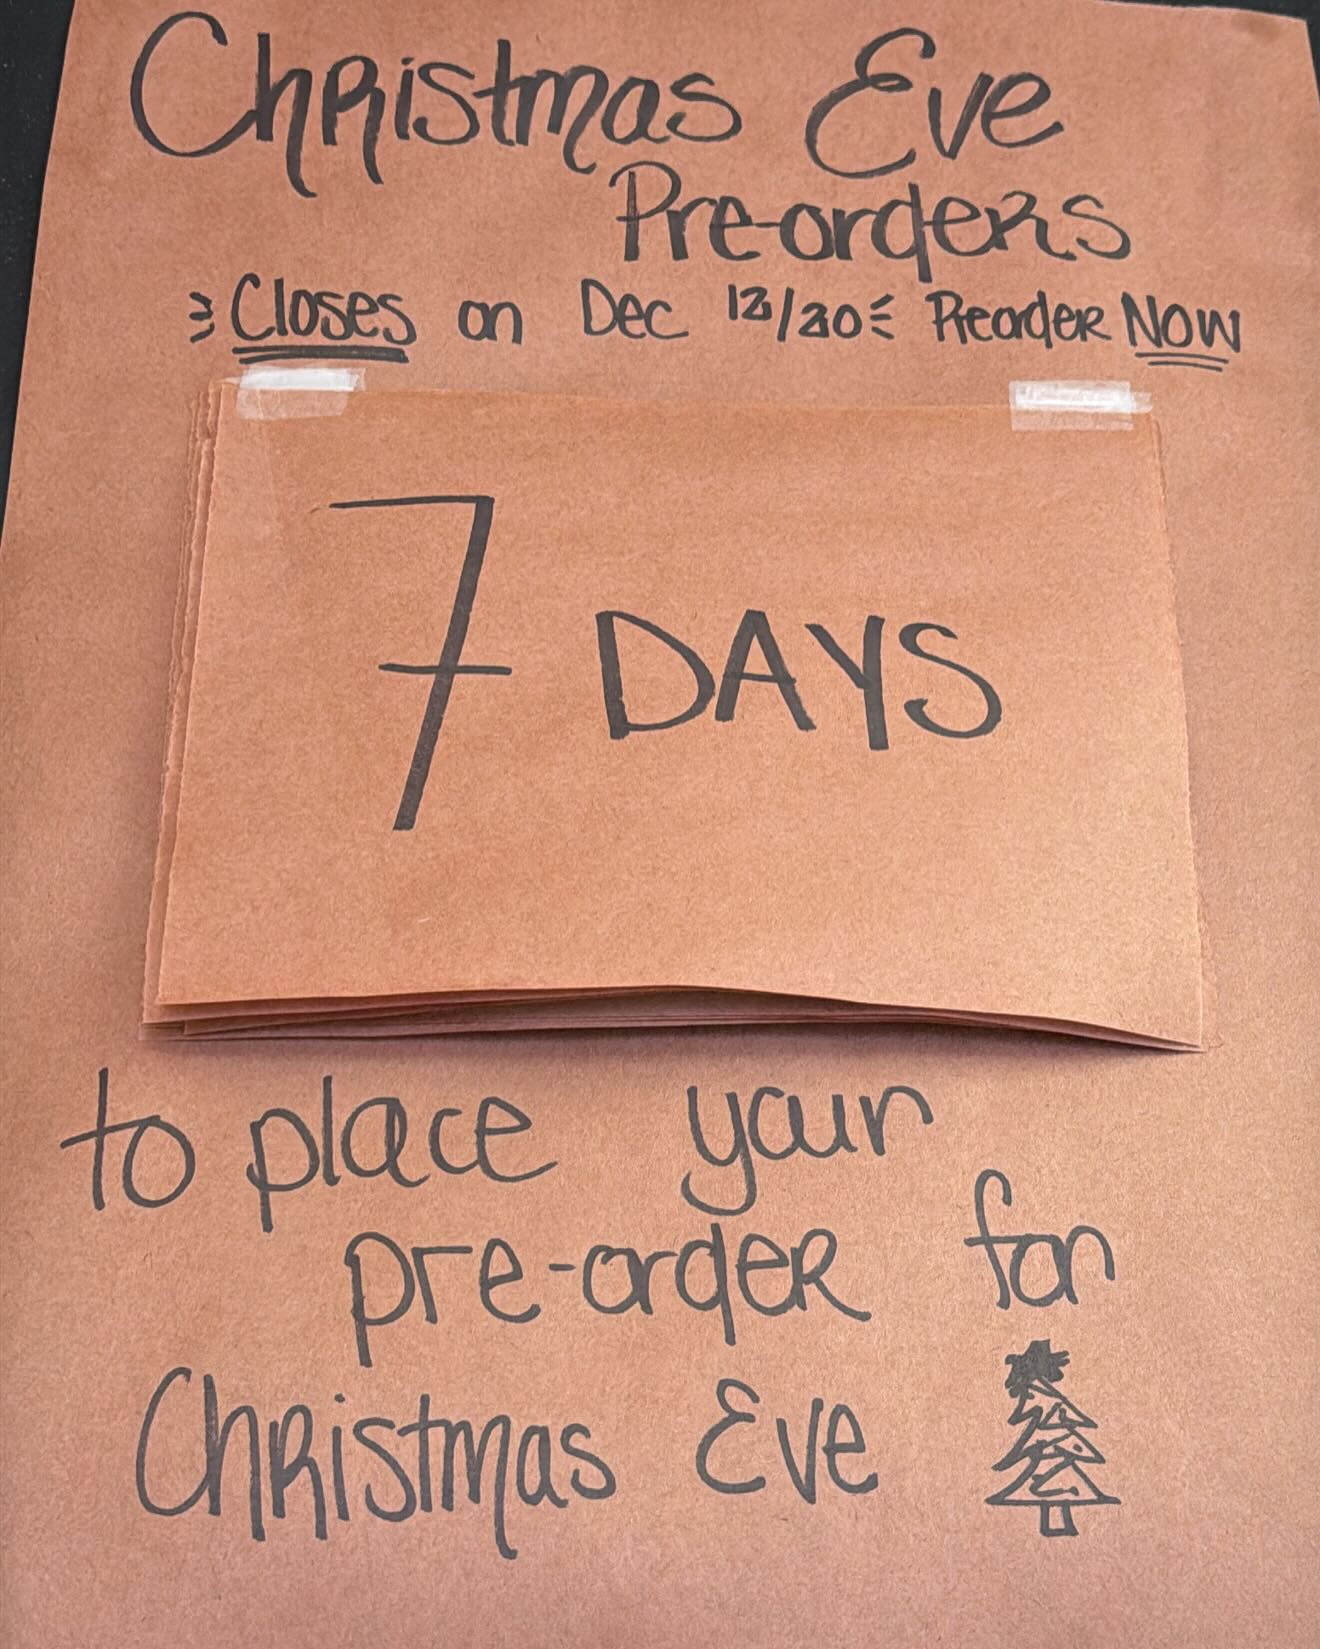 Christmas Eve
Pre-orders
Closes on Dec 12/20 Preorder NOW
7 DAYS
to place your
pre-order for
Christmas Eve